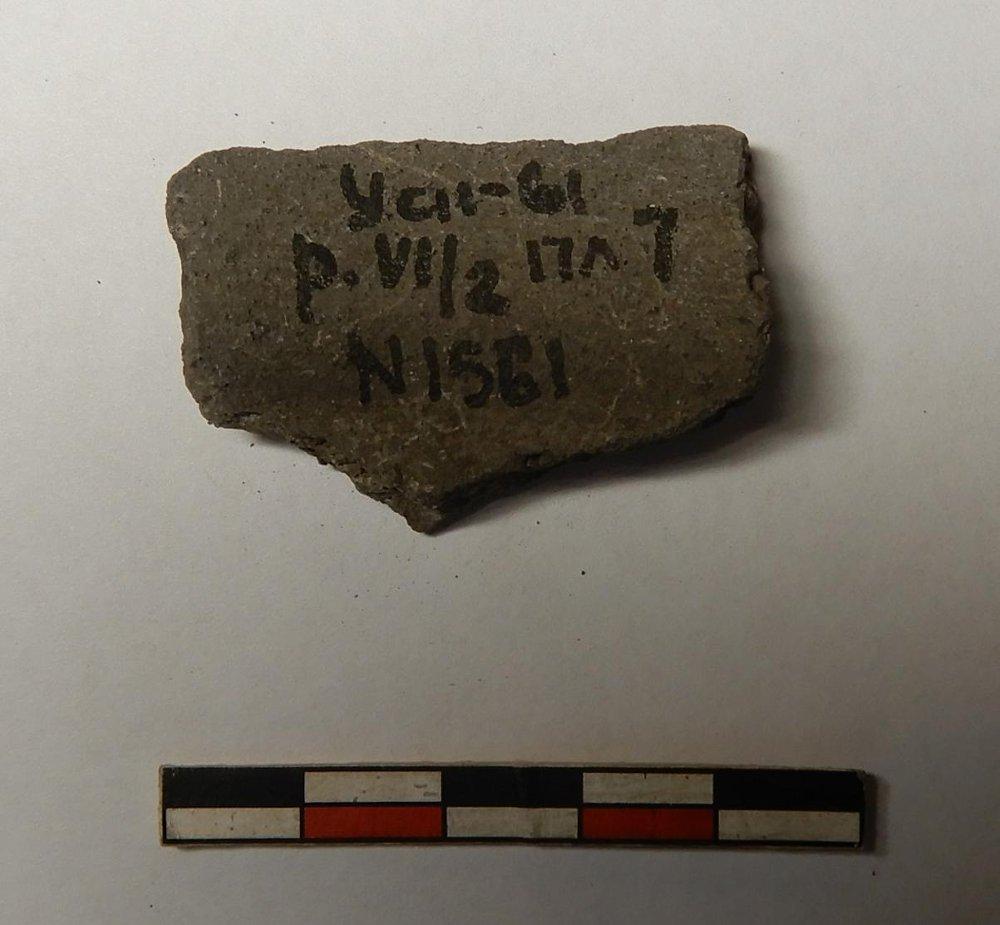 Усп-61
р. VI/2 пл 7
N1561